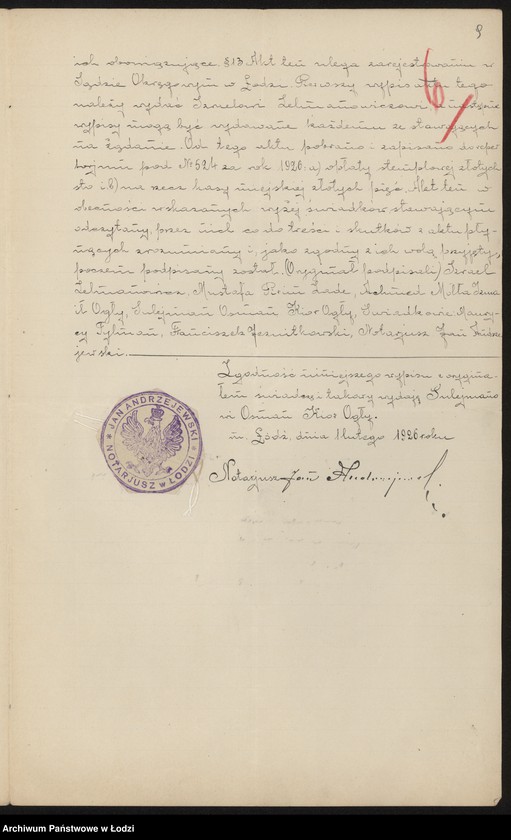 9
6/
ich obowiązujące. § 13 Akt ten ulega zarejestrowaniu w
Sądzie Okręgowym w Łodzi. Pierwszy wypis aktu tego
należy wydać Izraelowi Lekmanowiczowi, a następne
wypisy mogą być wydawane każdemu ze stawających
na żądanie. Od tego aktu pobrano i zapisano do reper
torjum pod № 524 za rok 1926: a) opłaty stemplowej złotych
sto i b) na rzecz kasy miejskiej złotych pięć. Akt ten w
obecności wskazanych wyżej świadków stawającym
odczytany, przez nich co do treści i skutków z aktu pły-
nących zrozumiany i, jako zgodny z ich wolą przyjęty,
poczem podpisany został. (Oryginał podpisali) Izrael
Lekmanowicz, Mustafa Zade, Achmed Isma
ił Ogły, Sulejman Osman Kior Ogły, Świadkowie Maury-
cy Tylman, Franciszek Notarjusz Jan Andrze
jewski.
Zgodność niniejszego wypisu z orygina-
łem świadczę i takowy wydaję Sulejmano
wi Osman Kior Ogły.
m. Łódź, dnia 1 lutego 1926 roku
Notarjusz Jan Andrzejewski
JAN ANDRZEJEWSKI
NOTARJUSZ w ŁODZI
Archiwum Państwowe w Łodzi